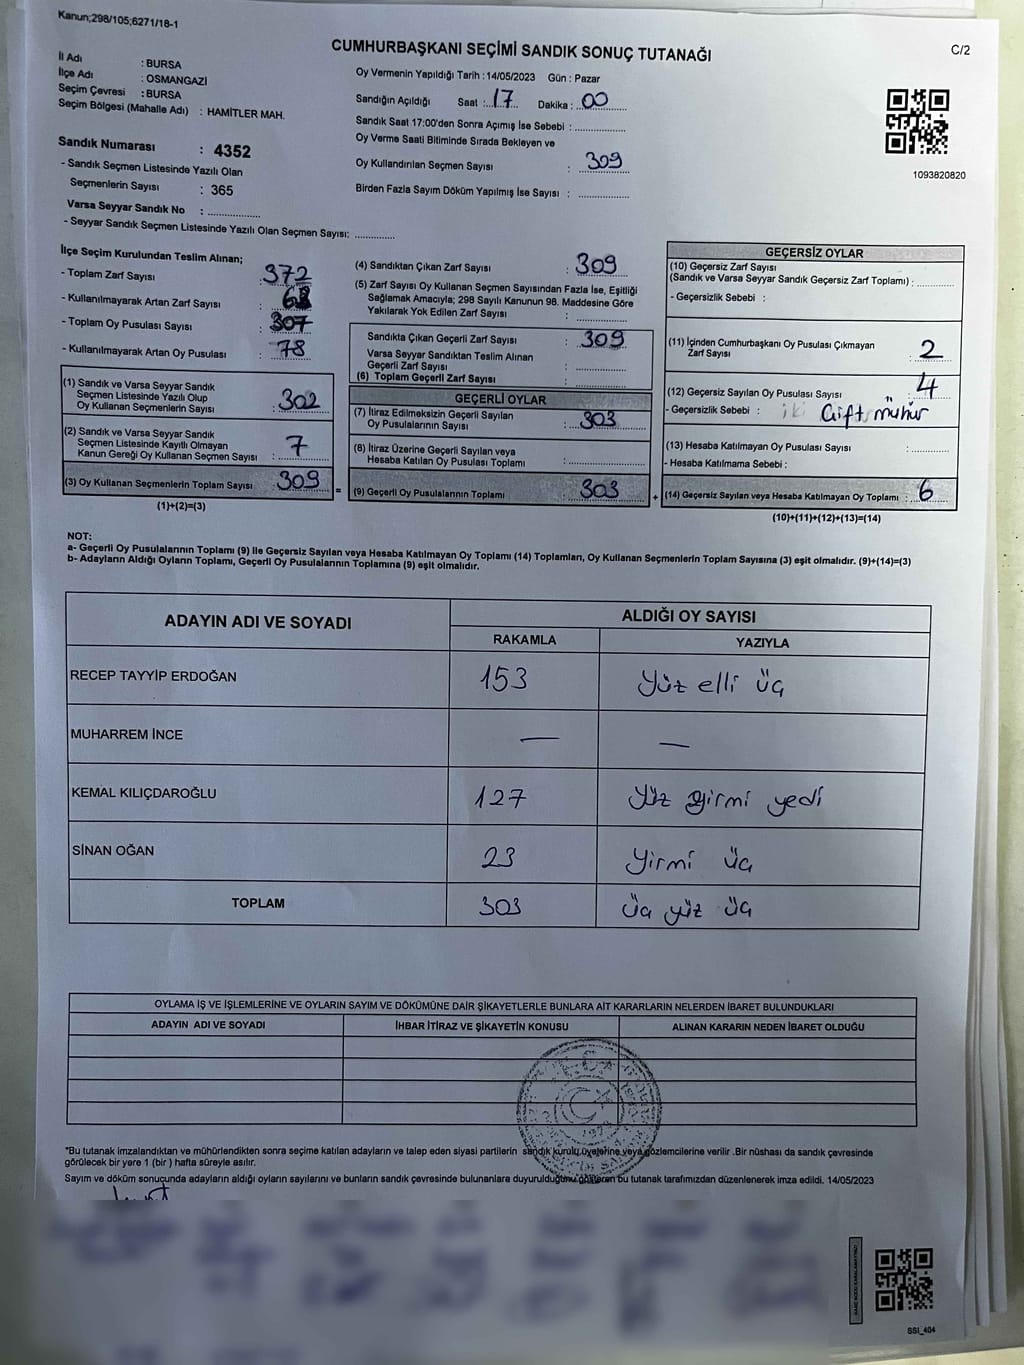 Kanun;298/105;6271/18-1
CUMHURBAŞKANI SEÇİMİ SANDIK SONUÇ TUTANAĞI
C/2
İl Adı : BURSA
İlçe Adı : OSMANGAZİ
Seçim Çevresi : BURSA
Seçim Bölgesi (Mahalle Adı) : HAMİTLER MAH.
Sandık Numarası : 4352
- Sandık Seçmen Listesinde Yazılı Olan
Seçmenlerin Sayısı : 365
Varsa Seyyar Sandık No : ................
- Seyyar Sandık Seçmen Listesinde Yazılı Olan Seçmen Sayısı: ............
Oy Vermenin Yapıldığı Tarih : 14/05/2023 Gün : Pazar
Sandığın Açıldığı Saat : 17 Dakika : 00
Sandık Saat 17:00'den Sonra Açımış İse Sebebi : ................
Oy Verme Saati Bitiminde Sırada Bekleyen ve
Oy Kullandırılan Seçmen Sayısı : 309
Birden Fazla Sayım Döküm Yapılmış İse Sayısı : ................
1093820820
İlçe Seçim Kurulundan Teslim Alınan;
- Toplam Zarf Sayısı : 372
- Kullanılmayarak Artan Zarf Sayısı :
- Toplam Oy Pusulası Sayısı : 307
- Kullanılmayarak Artan Oy Pusulası : 78
(1) Sandık ve Varsa Seyyar Sandık
Seçmen Listesinde Yazılı Olup
Oy Kullanan Seçmenlerin Sayısı : 302
(2) Sandık ve Varsa Seyyar Sandık
Seçmen Listesinde Kayıtlı Olmayan
Kanun Gereği Oy Kullanan Seçmen Sayısı : 7
(3) Oy Kullanan Seçmenlerin Toplam Sayısı : 309
(1)+(2)=(3)
(4) Sandıktan Çıkan Zarf Sayısı : 309
(5) Zarf Sayısı Oy Kullanan Seçmen Sayısından Fazla İse, Eşitliği
Sağlamak Amacıyla; 298 Sayılı Kanunun 98. Maddesine Göre
Yakılarak Yok Edilen Zarf Sayısı : ................
Sandıkta Çıkan Geçerli Zarf Sayısı : 309
Varsa Seyyar Sandıktan Teslim Alınan
Geçerli Zarf Sayısı : ................
(6) Toplam Geçerli Zarf Sayısı : ................
GEÇERLİ OYLAR
(7) İtiraz Edilmeksizin Geçerli Sayılan
Oy Pusulalarının Sayısı : 303
(8) İtiraz Üzerine Geçerli Sayılan veya
Hesaba Katılan Oy Pusulası Toplamı : ................
= (9) Geçerli Oy Pusulalarının Toplamı : 303
GEÇERSİZ OYLAR
(10) Geçersiz Zarf Sayısı
(Sandık ve Varsa Seyyar Sandık Geçersiz Zarf Toplamı) : ............
- Geçersizlik Sebebi :
(11) İçinden Cumhurbaşkanı Oy Pusulası Çıkmayan
Zarf Sayısı : 2
(12) Geçersiz Sayılan Oy Pusulası Sayısı : 4
- Geçersizlik Sebebi : iki Çift mühür
(13) Hesaba Katılmayan Oy Pusulası Sayısı : ............
- Hesaba Katılmama Sebebi :
+ (14) Geçersiz Sayılan veya Hesaba Katılmayan Oy Toplamı : 6
(10)+(11)+(12)+(13)=(14)
NOT:
a- Geçerli Oy Pusulalarının Toplamı (9) ile Geçersiz Sayılan veya Hesaba Katılmayan Oy Toplamı (14) Toplamları, Oy Kullanan Seçmenlerin Toplam Sayısına (3) eşit olmalıdır. (9)+(14)=(3)
b- Adayların Aldığı Oyların Toplamı, Geçerli Oy Pusulalarının Toplamına (9) eşit olmalıdır.
ADAYIN ADI VE SOYADI ALDIĞI OY SAYISI
RAKAMLA YAZIYLA
RECEP TAYYİP ERDOĞAN 153 Yüz elli üç
MUHARREM İNCE — —
KEMAL KILIÇDAROĞLU 127 Yüz yirmi yedi
SİNAN OĞAN 23 Yirmi üç
TOPLAM 303 Üç yüz üç
OYLAMA İŞ VE İŞLEMLERİNE VE OYLARIN SAYIM VE DÖKÜMÜNE DAİR ŞİKAYETLERLE BUNLARA AİT KARARLARIN NELERDEN İBARET BULUNDUKLARI
ADAYIN ADI VE SOYADI İHBAR İTİRAZ VE ŞİKAYETİN KONUSU ALINAN KARARIN NEDEN İBARET OLDUĞU
*Bu tutanak imzalandıktan ve mühürlendikten sonra seçime katılan adayların ve talep eden siyasi partilerin sandık kurulu üyelerine veya gözlemcilerine verilir .Bir nüshası da sandık çevresinde
görülecek bir yere 1 (bir ) hafta süreyle asılır.
Sayım ve döküm sonucunda adayların aldığı oyların sayılarını ve bunların sandık çevresinde bulunanlara duyurulduğunu gösteren bu tutanak tarafımızdan düzenlenerek imza edildi. 14/05/2023
SSİ_404